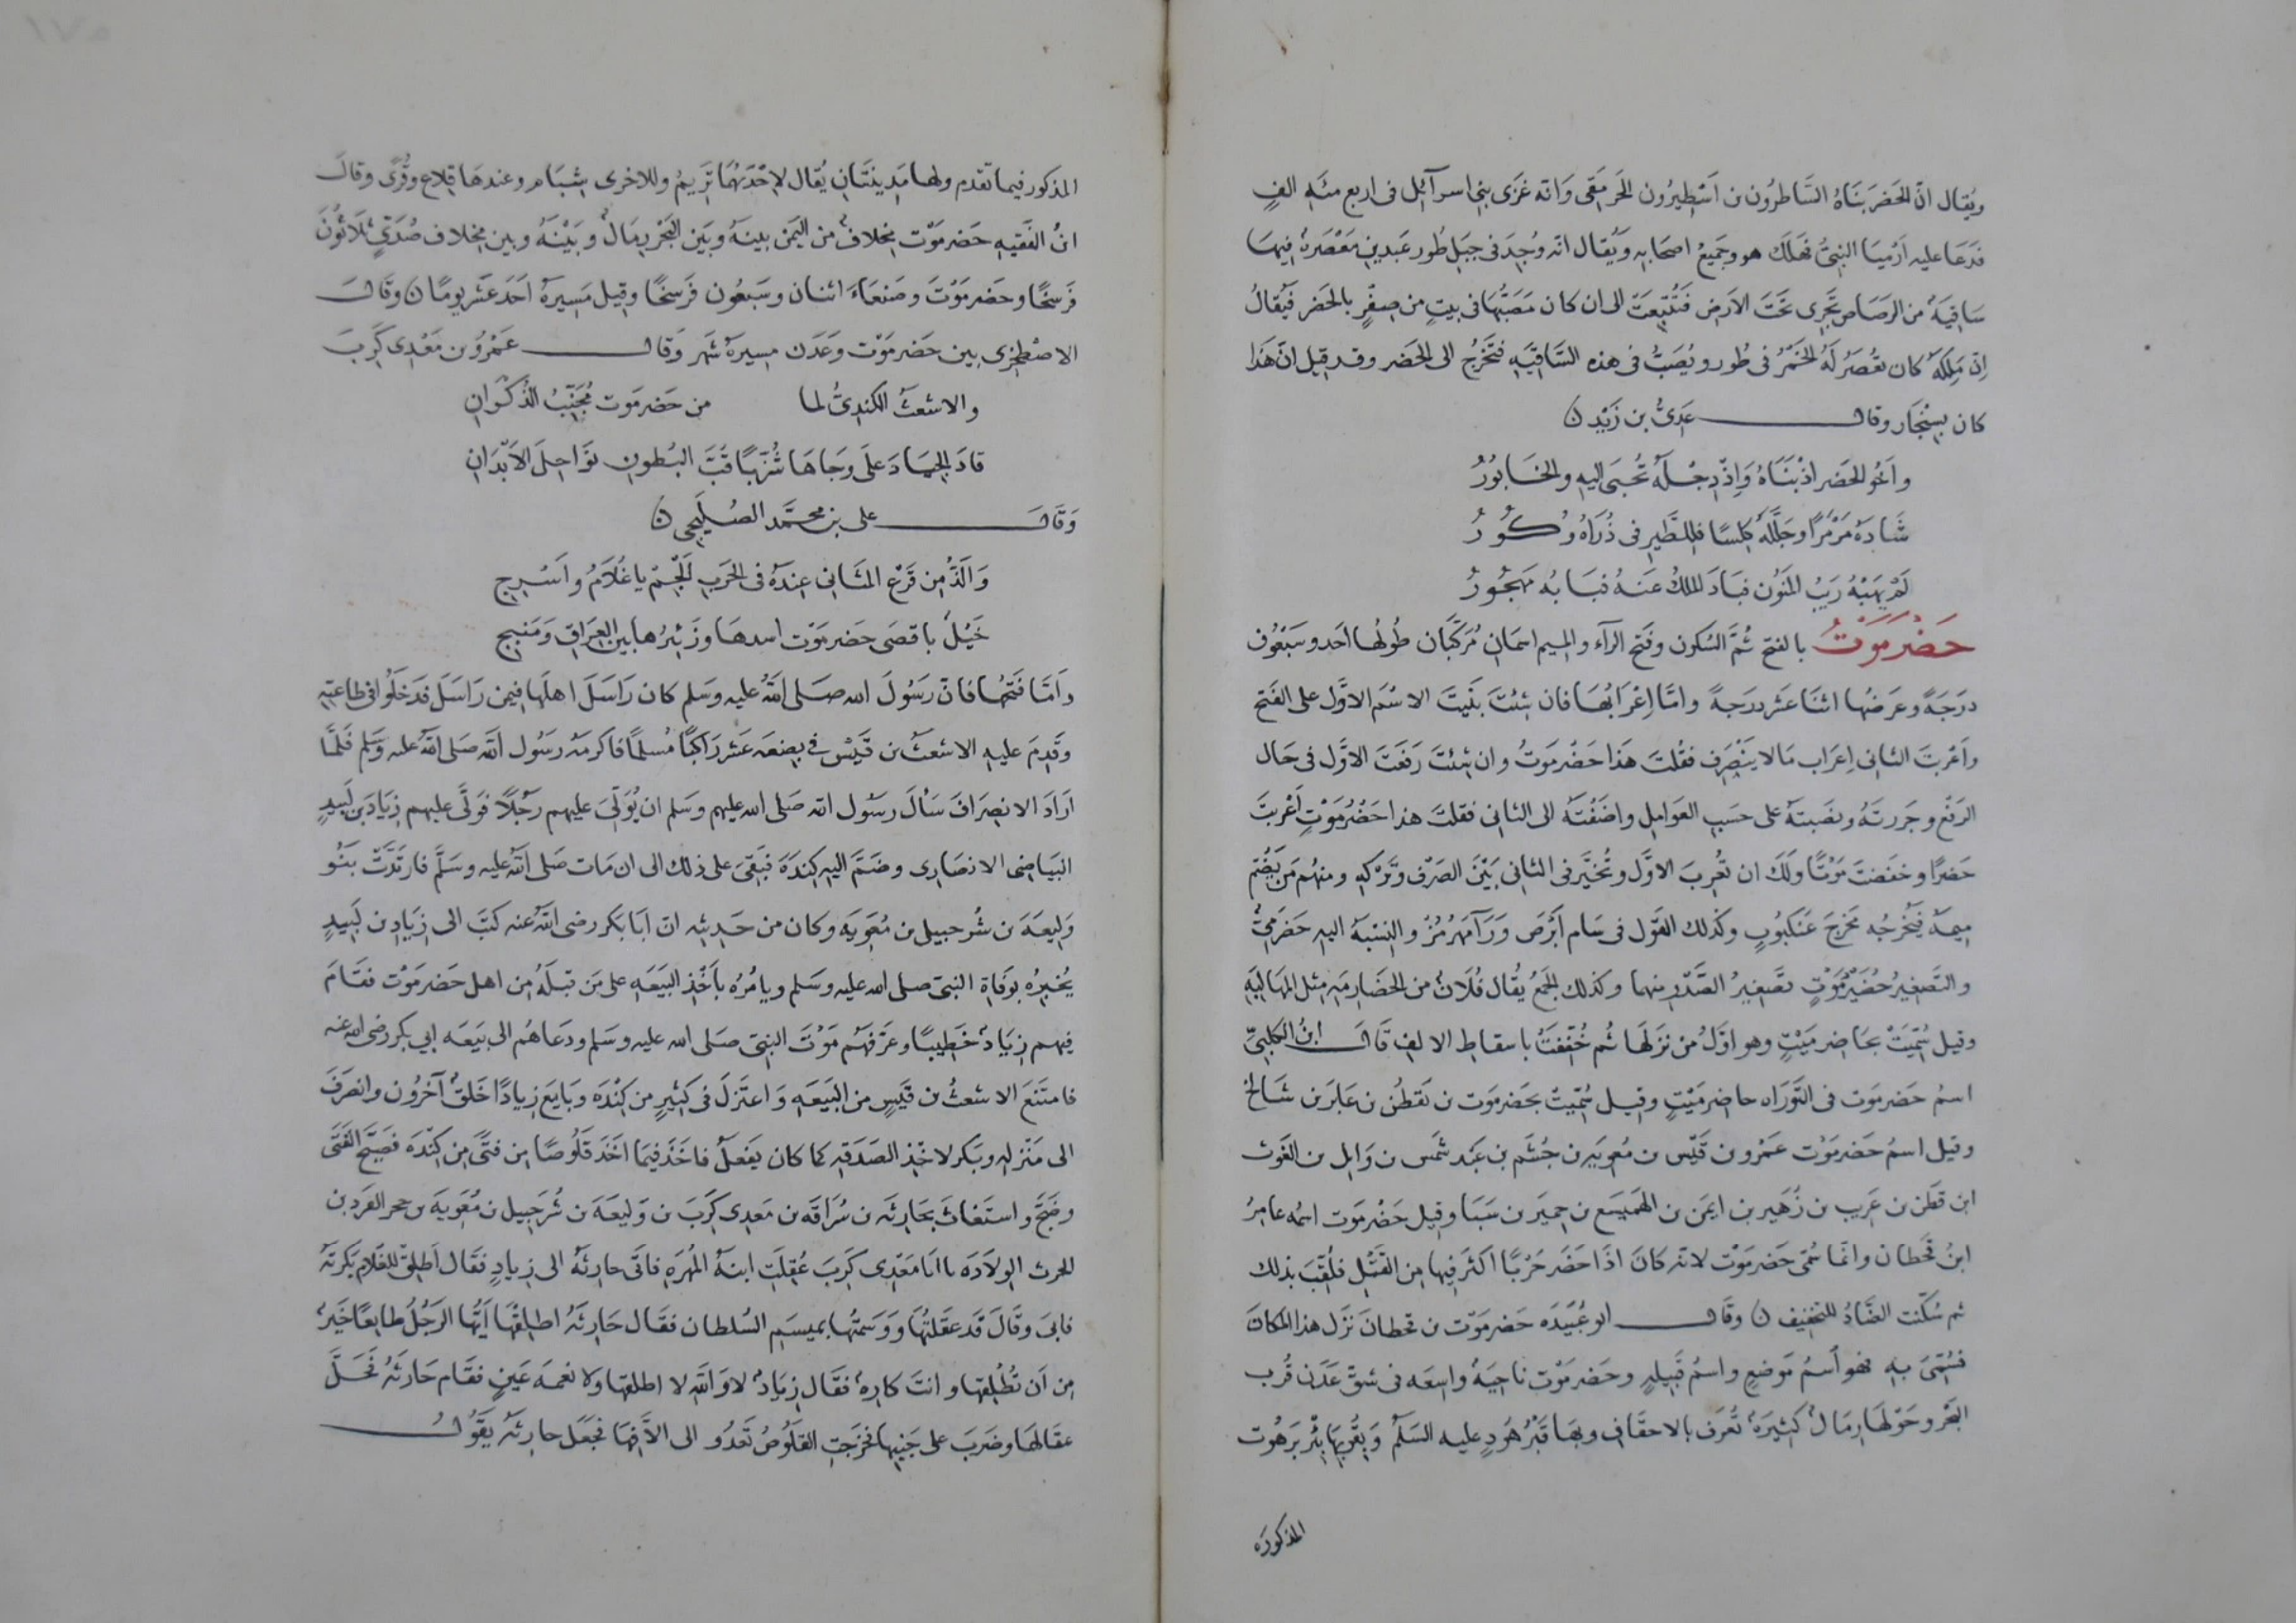 ويُقال انّ الحَضرَ بنَاهُ السَّاطرُون بن اَسْطِيرُون الجَرمَقى وَانه غزَى بنى اسرآئيل فى اربع مئه الفٍ
فدَعَا عليه اَرْميَا النبىُّ فهَلَكَ هو وجَميعُ اصحَابه ويُقال انه وُجِدَ فى جبَلِ طُور عَبدين مَعْصَرةٌ فيهَا
سَاقيَةٌ من الرصَاص تجَرى تحَتَ الارَضِ فَتُتُبِّعَتْ الى ان كان مَصَبُّهَا فى بيتٍ من صِفْرٍ بالحَضر فيُقالُ
اِنّ مَلِكَهُ كان تعُصَرُ لَهُ الخَمْرُ فى طُور ويُصَبُّ فى هذه السَّاقيَهِ فتَخرُجُ الى الحَضر وقد قيل انّ هَذا
كان بِسِنْجَار وقال عَدِىُّ بن زَيْدٍ ن
واَخُو الحَضر اذْ بنَاهُ وَاِذْ دِجْلَهُ تُجبَى اليهِ والخَابُورُ
شَادَهُ مَرْمَرًا وجَلَّلَهُ كِلسًا فلِلطَّيرِ فى ذُرَاهُ وُكُورُ
لَمْ يَهَبْهُ رَيبُ المَنُون فبَادَ الملكُ عَنهُ فبَابُه مَهجُورُ
حَضْرَمَوْتُ بالفتح ثُمَّ السُكون وفَتح الرآء والميم اسمَانِ مُرَكَّبَان طُولُها احَد وسَبْعُون
درَجَةً وعَرضُها اثنَا عَشر درَجةً وامَّا اِعْرَابُهَا فان شئتَ بنَيتَ الاسْمَ الاوَّل على الفَتح
واَعْربتَ الثانى اِعرَاب مَا لا يَنْصَرِف فقُلتَ هَذا حَضْرمَوتُ وان شئتَ رَفعَتَ الاوَّل فى حَال
الرَفْع وجَررتَهُ ونصَبتَهُ على حَسَبِ العَوامِل واضَفْتَهُ الى الثانى فقلتَ هذا حَضْرُمَوْتٍ اَعْربتَ
حَضرًا وخفَضتَ مَوْتًا ولَكَ ان تُعربَ الاوَّل وتُخيَّرَ فى الثانى بَيْنَ الصَرْف وتَرْكهِ ومنهُم مَن يَضُمّ
ميمَهُ فيُخرجُه مَخرَجَ عَنكَبُوبٍ وكذلك القَول فى سَام اَبْرَصَ وَرَآمَهُرْمُزْ والنِسْبَهُ اليهِ حَضرَمِىٌّ
والتَصغيرُ حُضَيْرَمَوْتٍ تصَغيرُ الصَّدْرِ منهما وكذلك الجَمعُ يُقال فُلَانٌ من الحَضَارِمَهِ مثل المهَالبَهِ
وقيل سُمّيَتْ بحَاضِر مَيّتٍ وهو اوَّلُ من نزَلهَا ثُم خُفّفتَ باسقاط الالف قَالَ ابنُ الكلبِىّ
اسمُ حَضرمَوت فى التَّوَرَاه حاضِر مَيّتٍ وقيل سُمّيتْ بحَضرمَوت بن نقطُن بن عابَر بن شَالخ
وقيل اسمُ حَضرمَوْت عَمْرو بن قَيْس بن مُعٰويَه بن جُشَم بن عَبد شَمس بن وَايل بن الغَوث
ابن قطَن بن عَريب بن زُهَير بن ايمَن بن الهَميسَع بن حِميَر بن سَبَا وقيل حَضْرمَوت اسمُه عامِرُ
ابنُ قحَطان وانّما سُمّى حَضرمَوْت لانه كانَ اذَا حَضَر حَربًا اكثَر فيها مِن القَتْل فلُقّبَ بذلك
ثم سُكّنت الضَّادُ للتخفيف ن وقَالَ ابو عُبَيْدَه حَضرمَوْت بن قحطانَ نَزَل هذا المكَانَ
فسُمّىَ بهِ فهو اسمُ مَوضِعٍ واسمُ قَبيلهٍ وحَضرمَوْت ناحيَهٌ واسِعَه فى شرقى عَدَن قُربَ
البَحْر وحَوْلهَا رِمَالٌ كَثيرَةٌ تُعرَف بالاحقَافِ وبهَا قَبْرُ هُودٍ عليه السَلمُ وبقُربهَا بئرُ بَرَهُوت
المذكورَه
المذكور فيما تقدم ولهَا مَدِينتَانِ يُقال لاِحْدَيهُمَا تَرِيمُ وللاخرى شِبَام وعندهَا قِلاع وقُرًى وقالَ
ابنُ الفَقيهِ حَضرمَوْت مِخلافٌ من اليَمن بينَهُ وبَين البَحْر رِمَالٌ وبَيْنَهُ وبين مِخلاف صُدَىٍ ثلَاثُونَ
فَرسَخًا وحَضرمَوْتَ وصَنعَاءَ اثنان وسَبعُون فَرسَخًا وقيل مَسِيرَهُ احَدَ عَشَر يومًا ن وقَالَ
الاصْطَخرى بين حَضرمَوْت وعَدَن مسيرَهُ شَهر وَقال عَمْرو بن مَعْدى كَرِبَ
والاشعثُ الكندِىُّ لما من حَضرمَوت مُجَنِّبُ الذُكرَانِ
قادَ الجِيَادَ علَى وجَاهَا شُزَّبًا قُبَّ البُطونِ نوَاحِلَ الاَبْدَانِ
وَقَالَ على بن محمَّد الصُلَيحى ن
وَاَلَذُّ مِن قَرْعِ المثَانى عِندَهُ فى الحَربِ اَلْجِمْ يا غُلاَمُ واَسْرِجِ
خَيْلٌ باقصَى حَضرمَوْت اسدها وزَئيرُها بين العِرَاقِ ومَنبجِ
وامّا فَتحُهَا فانّ رَسُولَ الله صَلى اللهُ عليه وسَلم كان رَاسَلَ اهلَها فيمن رَاسَلَ فدَخلُوا فى طاعتهِ
وقَدِمَ عليهِ الاشعَثُ بن قَيْس فى بضعَه عَشَر رَاكبًا مُسلمًا فاكرمَهُ رسُول الله صَلى اللهُ عليه وسَلم فلَمَّا
ارَادَ الانصِرَافَ سَأل رسُول الله صَلى الله عليهم وسَلم ان يُوَلّىَ عليهم رَجُلًا فوَلَّى عليهم زِيَادَ بن لَبيدٍ
البَيَاضِى الانصَارِى وضَمَّ اليهِ كِندَةَ فبَقىَ على ذلك الى ان مَات صَلى اللهُ عليه وسَلَّم فارتَدَّتْ بَنُو
وَليعَةَ بن شُرحبيل بن مُعٰويَه وكان من حَديثه انّ ابَا بكر رضى اللهُ عنه كتَبَ الى زِيَادِ بن لَبيدٍ
يُخبرُه بوَفَاةِ النبىّ صلى الله عليه وسَلم ويامُرُه بأخْذِ البَيْعَهِ على مَن قبلَهُ مِن اهل حَضرمَوْت فقَامَ
فيهم زِيَادٌ خَطيبًا وعَرّفهُم مَوْتَ النبىّ صَلى الله عليه وسَلم ودَعَاهُم الى بَيعَه ابى بكر رضى الله عنه
فامتنَعَ الاشعثُ بن قَيسٍ من البَيعَهِ وَاعتَزلَ فى كَثيرٍ من كِنْدَه وبَايَع زيادًا خَلقٌ آخرُون وانصَرَفَ
الى مَنْزلهِ وبَكّر لاخذِ الصَدَقهِ كما كان يَفعَلُ فاخَذَ فيمَا اخَذَ قَلُوصًا مِن فتًى مِن كِنْدَه فصَيّحَ الفَتَى
وضَجَّ واستغَاثَ بحَارثَه بن سُرَاقَه بن مَعدِى كَرِبَ بن وَليعَهَ بن شُرَحبيل بن مُعٰويَهَ بن حجر القرد بن
الحرث الولاّدَه يا ابَا مَعْدِى كَرِبَ عُقِلَت ابنَهُ المُهرَهِ فاتَى حارثَهُ الى زِيادٍ فقَال اَطلِقْ للغُلامِ بَكرتَهُ
فابَى وقَالَ قد عَقَلتُها ووَسَمتُها بميسَمِ السُلطان فقَال حَارثَهُ اطلِقْها اَيُّها الرَجُلُ طايعًا خَيرٌ
مِن اَن تُطْلِقها وانتَ كارِهٌ فقَال زيَادٌ لا وَاللهِ لا اطلقها ولا نعمه عَينٍ فقَام حَارثَهُ فحَلَّ
عقَالهَا وضَرَبَ على جَنبها فخرَجَتِ القَلُوصُ تعدُو الى اُلّافها فجعَل حارثَه يَقُولُ